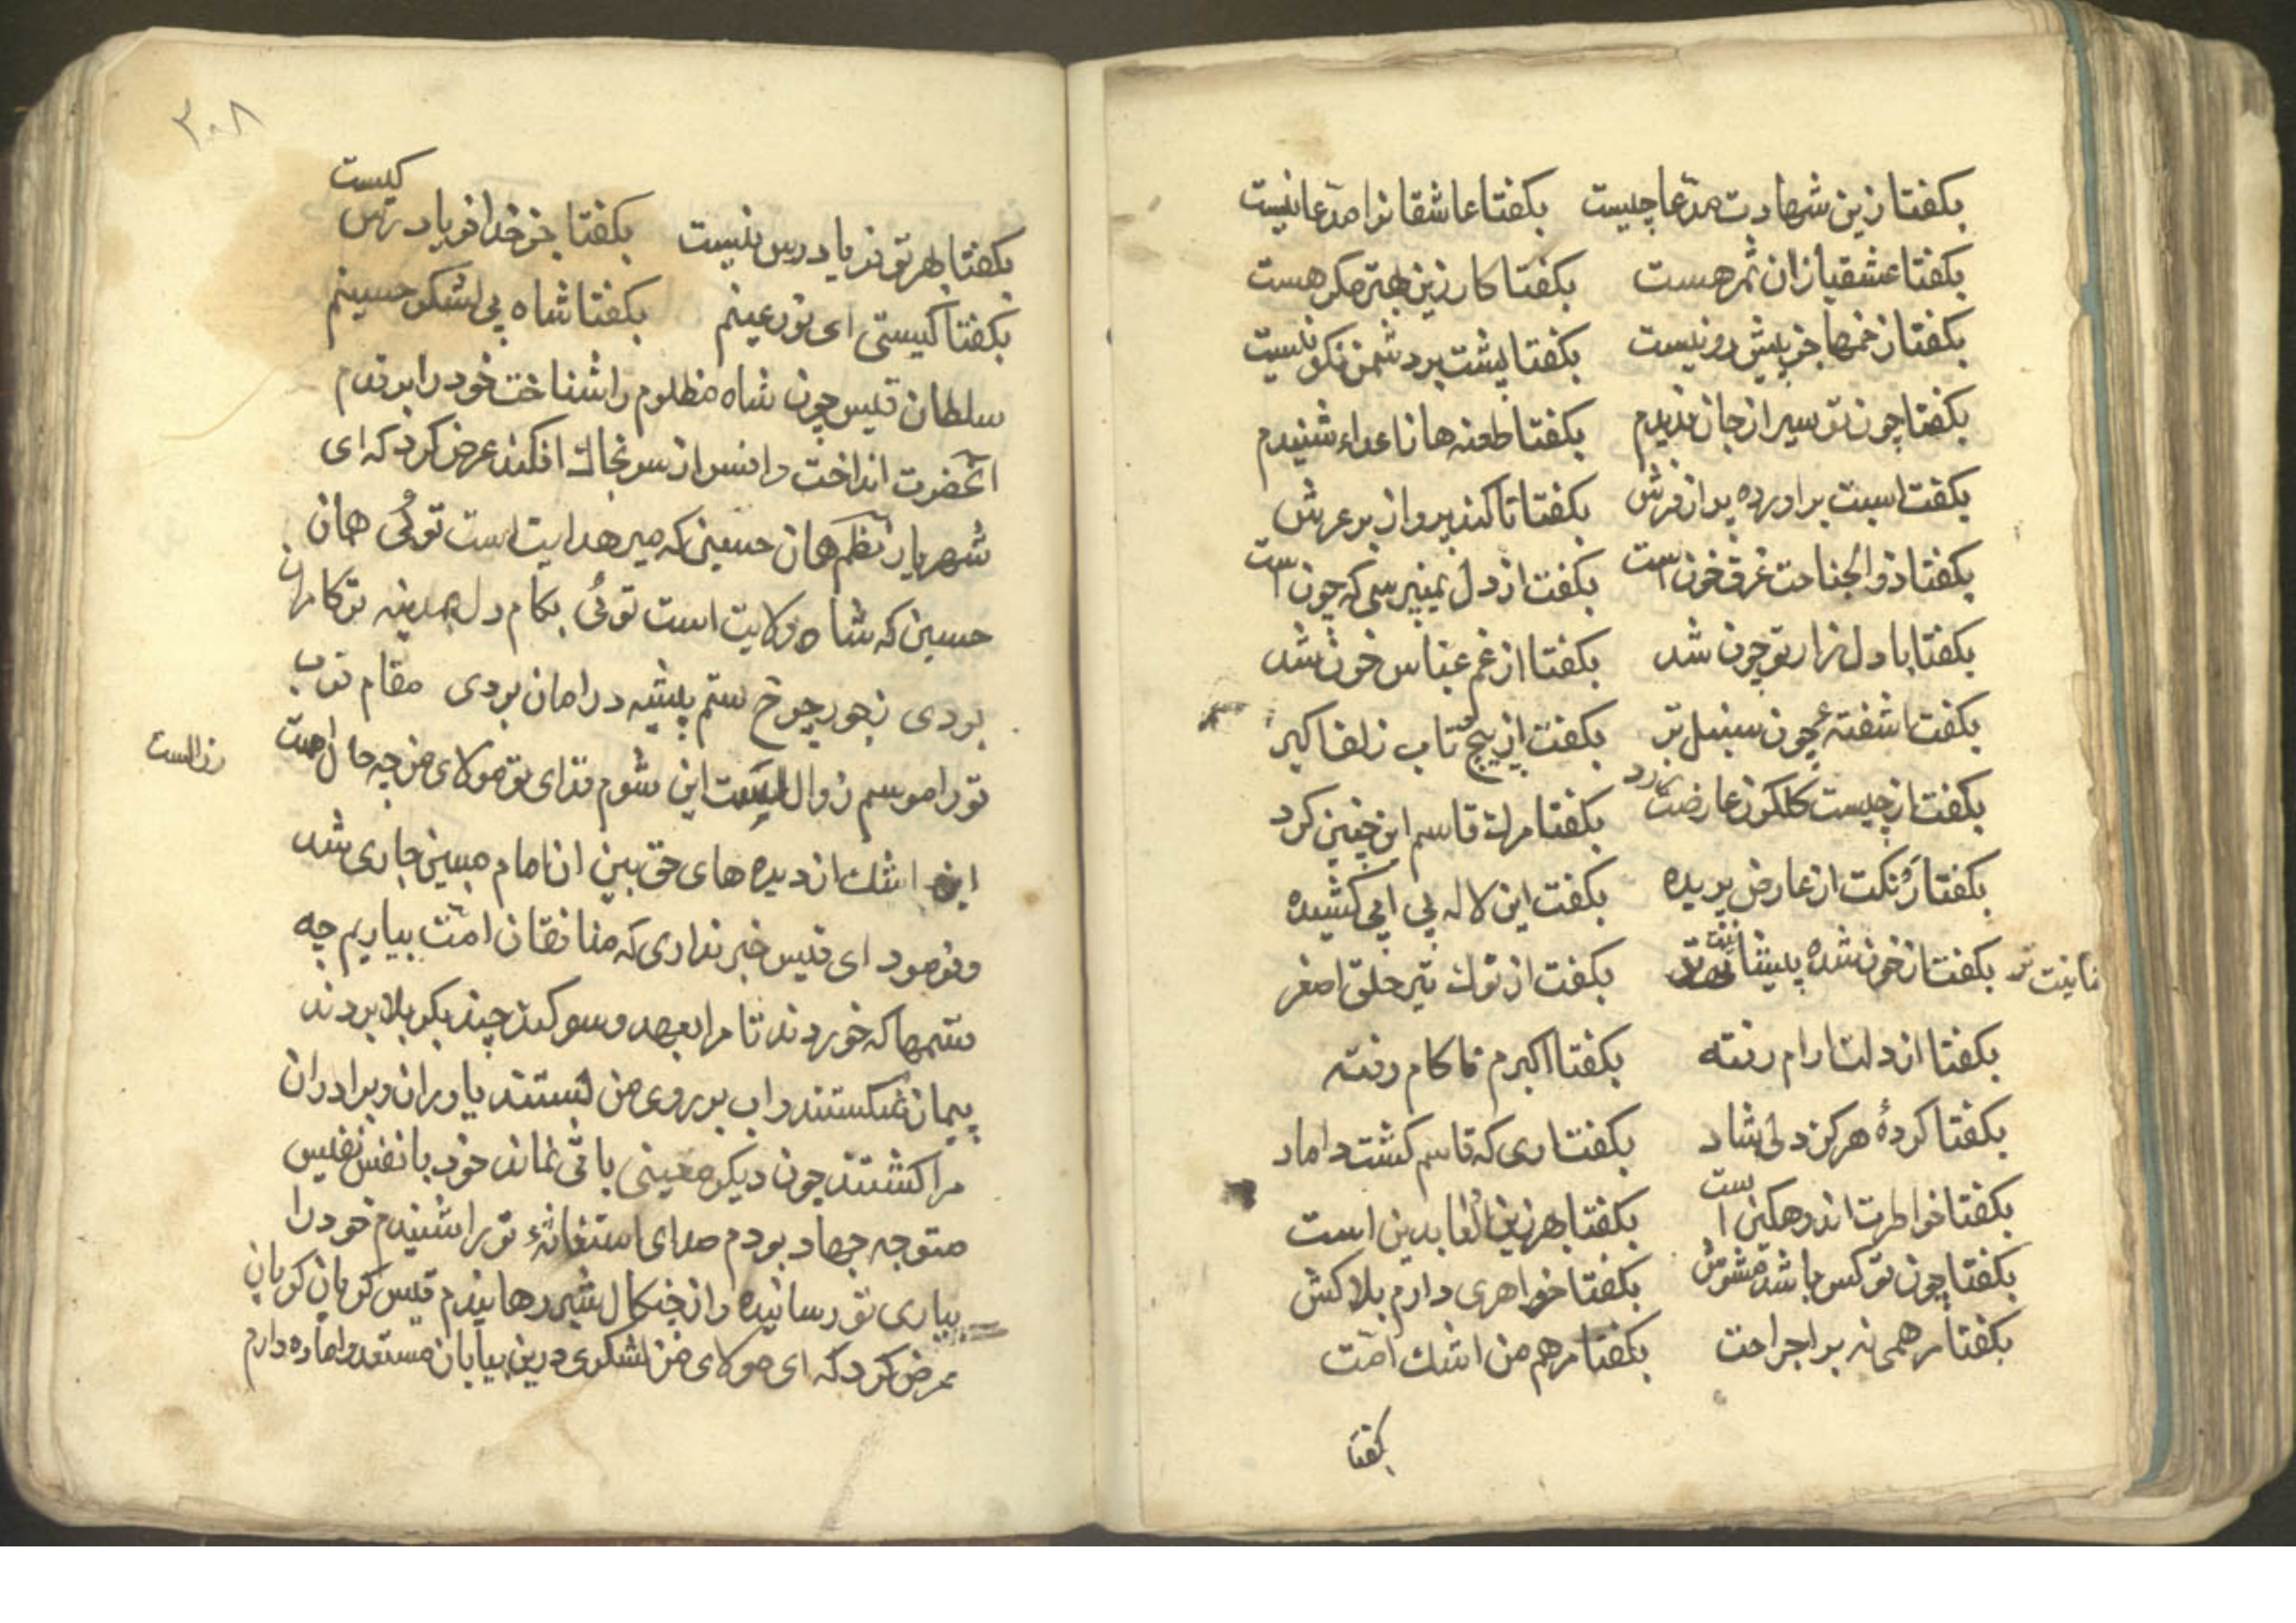 بکفتا زین شهادت مدّعا چیست بکفتا عاشقانرا مدّعا نیست
بکفتا عشقبازان ثمر هست بکفتا کار زین بهتر مکر هست
بکفتا زخمها جز پیش رو نیست بکفتا پشت بر دشمن نکو نیست
بکفتا چون تو سیر از جان ندیدم بکفتا طعنه ها ز اعداء شنیدم
بکفت اسبت براورده پر از فرش بکفتا تا کند پرواز بر عرش
بکفتا ذوالجناحت غرق خون است بکفت از دل نمیپرسی که چون است
بکفتا با دل زار تو چون شد بکفتا از غم عباس خون شد
بکفت اشفتهٔ چون سنبل تر بکفت از پیچ تاب زلف اکبر
بکفت از چیست کلکون عارضت زرد بکفتا مرک قاسم این چنین کرد
بکفتا رنکت از عارض پریده بکفت این لاله بی ابی کشیده
بکفتا از خون شده پیشا بکفت از نوک تیر حلق اصغر
بکفتا از دلت ارام رفته بکفتا اکبرم ناکام رفته
بکفتا کردهٔ هرکز دلی شاد بکفتا ری که قاسم کشت داماد
بکفتا خواطرت اندوهکین است بکفتا بهر زین العابدین است
بکفتا چون تو کس باشد مشوّش بکفتا خواهری دارم بلاکش
بکفتا مرهمی نه بر اجراحت بکفتا مرهم من اشک امّت
بکفتا
۳۰۸
بکفتا بهر تو فریادرس نیست بکفتا جز خدا فریادرس کیست
بکفتا کیستی ای نور عینم بکفتا شاه بی لشکر حسینم
سلطان قیس چون شاه مظلوم را شناخت خود را بر قدم
آنحضرت انداخت و افسر از سر بخاک افکند عرض کرد که ای
شهریار همان حسینی که میر هدایت است توئی همان
حسین که شاه ولایت است توئی بکام دل بمدینه تو کامران
بودی ز جور چرخ ستم پیشه در امان بودی مقام قرب
تورا موسم زوال است این شوم فدای تو مولای من چه حال است
زوالست
این اشک از دیده های حق بین ان امام مبین جاری شد
و فرمود ای قیس خبر نداری که منافقان امّت بیاریم چه
ستمها که خوردند تا مرا بعهد و سوکند چند بکربلا بردند
پیمان شکستند و اب بر روی من بستند یاوران و برادران
مرا کشتند چون دیکر معینی باقی نماند خود با نفس نفیس
متوجه جهاد بودم صدای استغاثهٔ تو را شنیدم خود را
بیاری تو رسانیده و از چنکال شیر رهانیدم قیس کریان کریان
عرض کرد که ای مولای من لشکری درین بیابان مستعد و اماده دارم